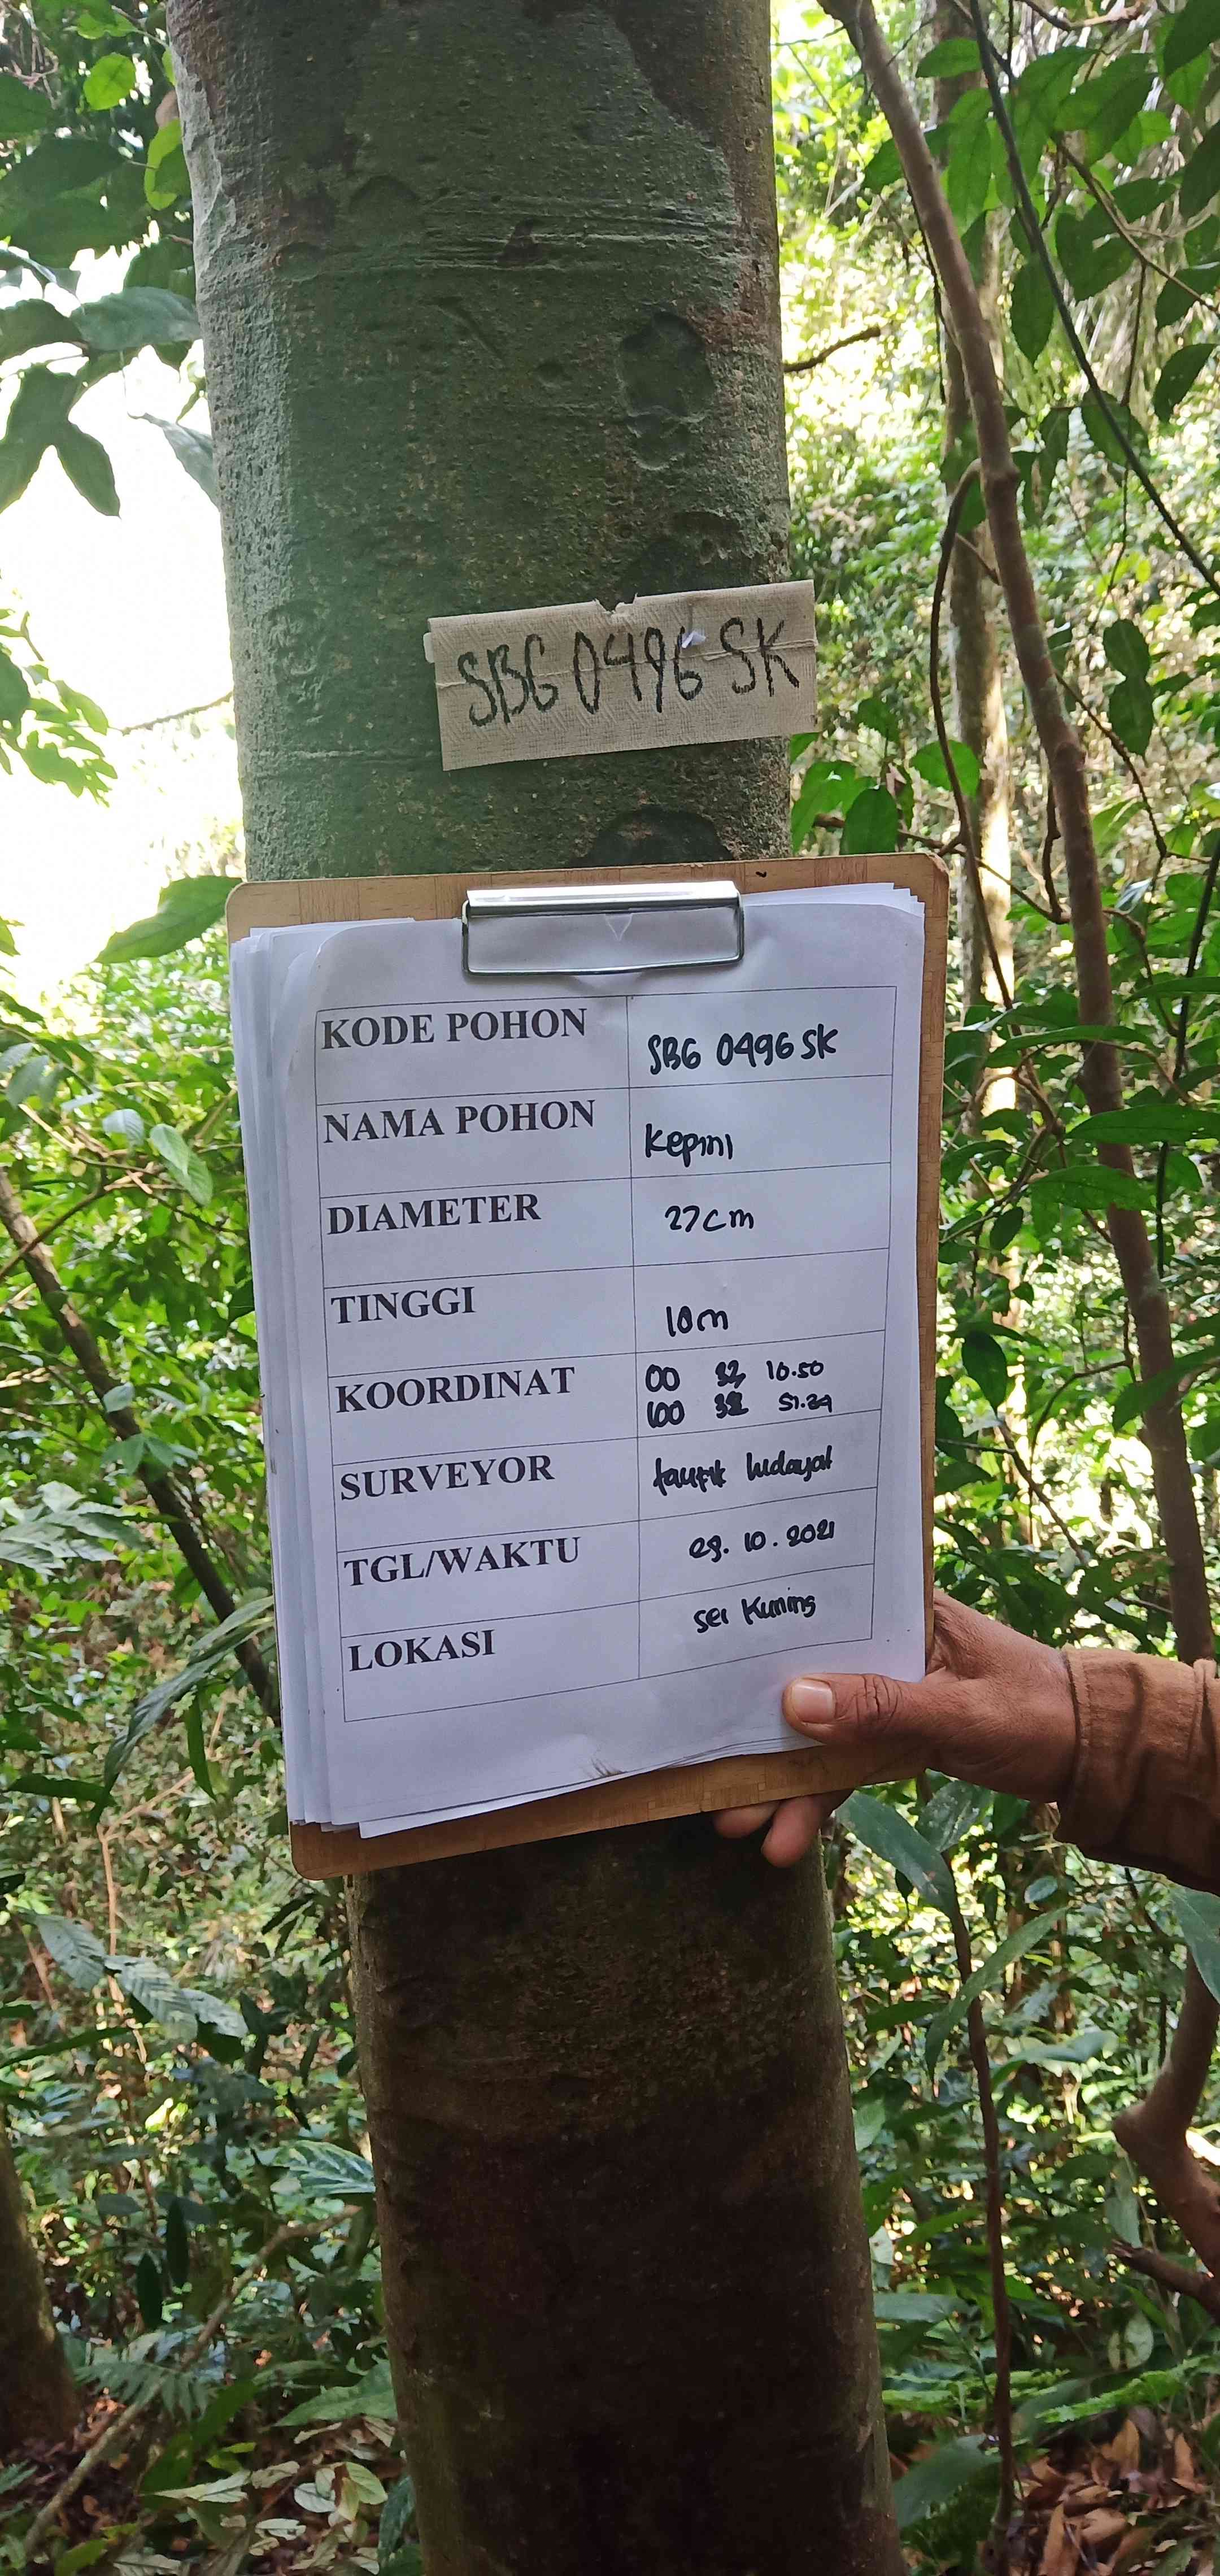 SBG 0496 SK
KODE POHON SBG 0496 SK
NAMA POHON Kepini
DIAMETER 27cm
TINGGI 10m
KOORDINAT 00 10.50
100
SURVEYOR taufik hidayat
TGL/WAKTU 10. 2021
LOKASI sei Kuning